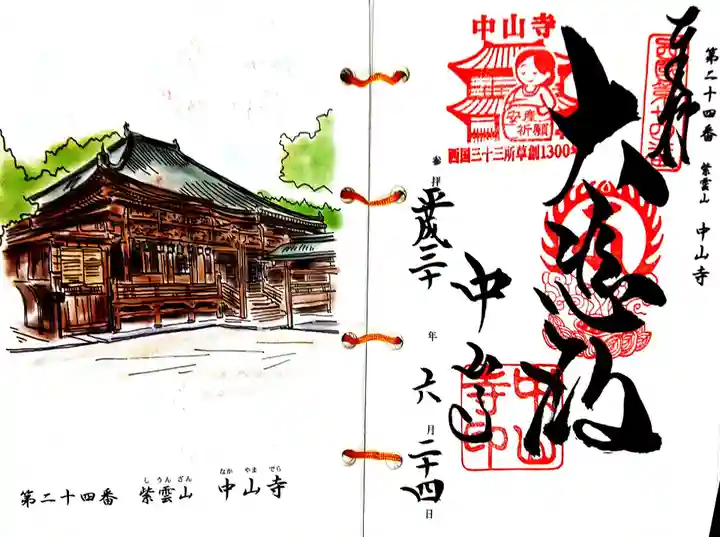 第二十四番 紫雲山 中山寺
しうんざん なかやまでら
中山寺
安産
祈願
西国三十三所草創1300年
第二十四番 紫雲山 中山寺
奉拝
大悲殿
中山寺
中山
寺印
参拝 平成三十年 六月二十四日